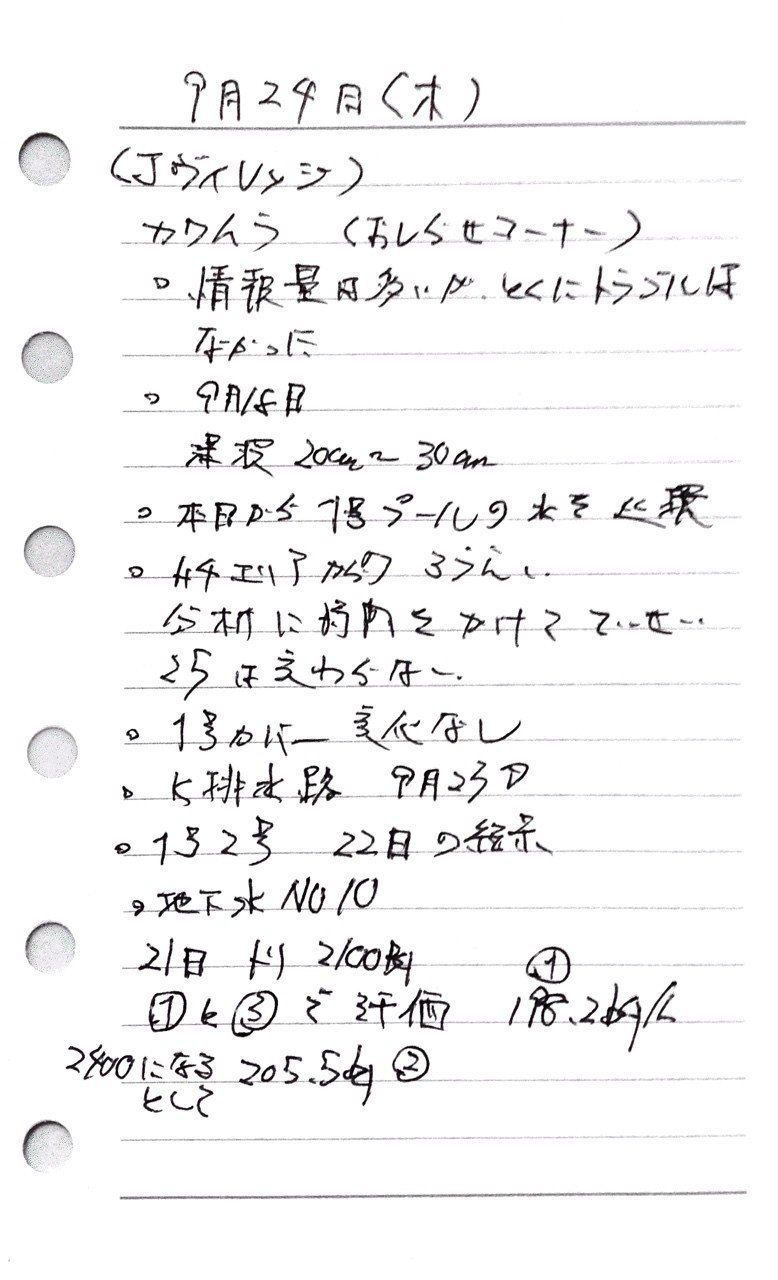 9月24日(木)
(Jヴィレッジ)
カワムラ (おしらせコーナー)
○ 情報量は多いが、とくにトラブルは
なかった
○ 9月18日
津波 20cm～30cm
○ 本日から 1号プールの水を 循環
○ H4エリアから
分析に時間をかけて
25は変わらない
○ 1号カバー 変化なし
○ K排水路 9月23日
○ 1号2号 22日の結果
○ 地下水 NO10
21日 トリ 2100Bq ①
①と③で評価 198.2Bq/L
2400になる 205.5Bq ②
として